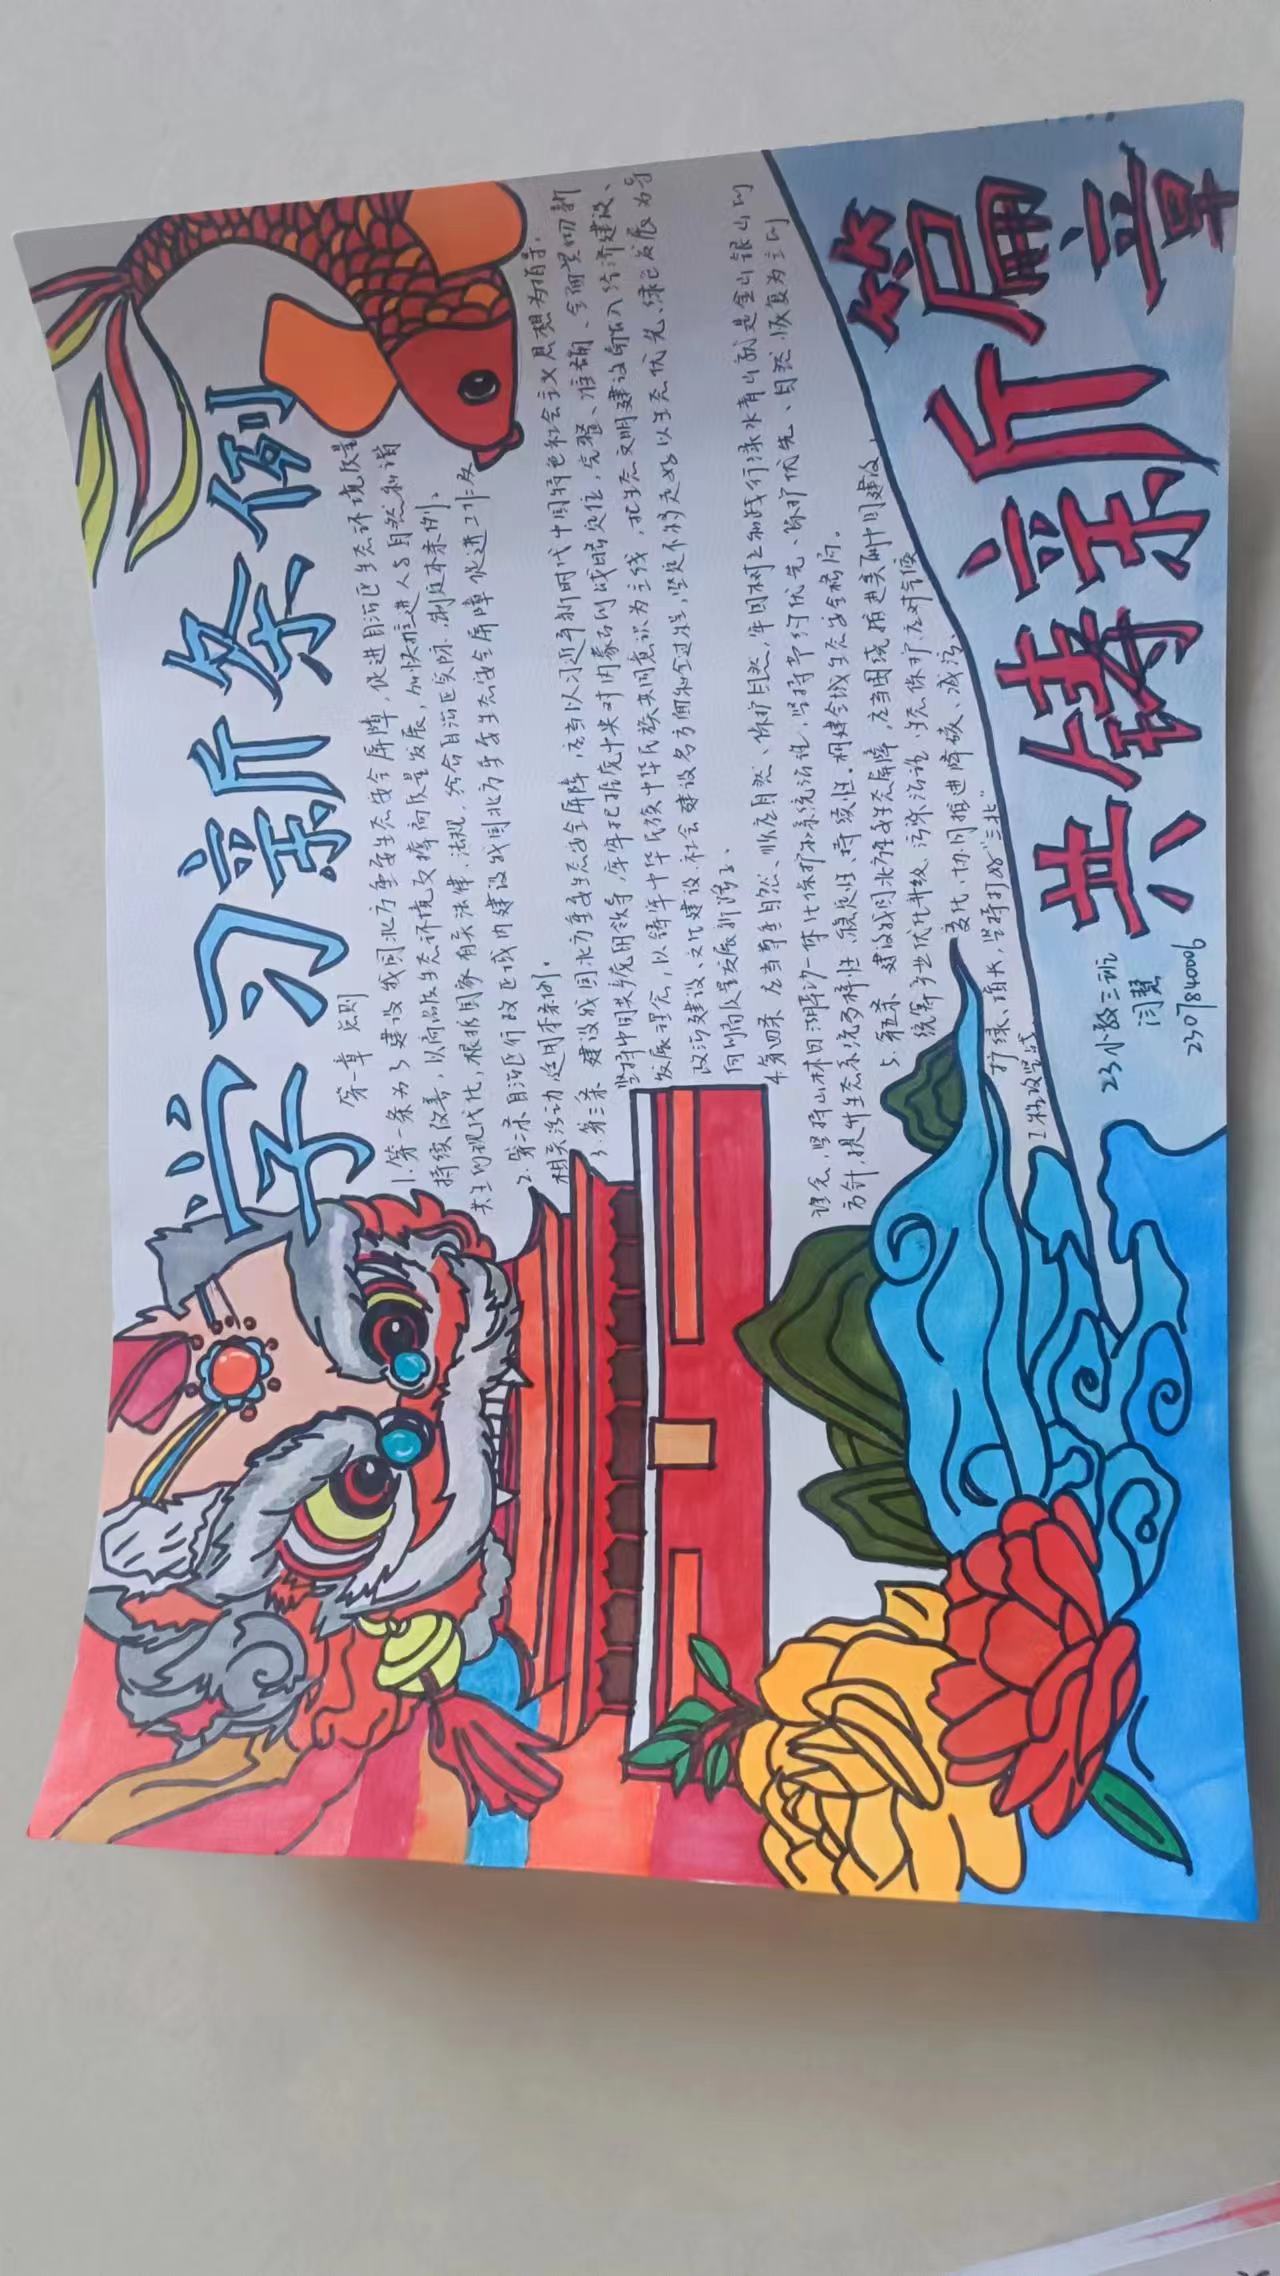 学习新条例
第一章 总则
1.第一条 为了建设我国北方重要生态安全屏障，促进自治区生态环境质量
持续改善，以高品质生态环境支撑高质量发展，加快推进人与自然和谐
共生的现代化，根据国家有关法律、法规，结合自治区实际，制定本条例。
2.第二条 自治区行政区域内建设我国北方重要生态安全屏障促进工作及
相关活动，适用本条例。
3.第三条 建设我国北方重要生态安全屏障，应当以习近平新时代中国特色社会主义思想为指导，
坚持中国共产党的领导，牢牢把握党中央对内蒙古的战略定位，完整、准确、全面贯彻新
发展理念，以铸牢中华民族共同体意识为主线，把生态文明建设融入经济建设、
政治建设、文化建设、社会建设各方面和全过程，坚定不移走好以生态优先、绿色发展为导
向的高质量发展新路子。
4.第四条 应当尊重自然、顺应自然、保护自然，牢固树立和践行绿水青山就是金山银山的
理念，坚持山水林田湖草沙一体化保护和系统治理，坚持节约优先、保护优先、自然恢复为主的
方针，提升生态系统多样性、稳定性、持续性，构建全域生态安全格局。
5.第五条 建设我国北方重要生态屏障，应当围绕推进美丽中国建设，
统筹产业优化升级、污染治理、生态保护、应对气候
变化，协同推进降碳、减污、
扩绿、增长，坚持打好"三北"
工程攻坚战
共铸新篇章
23小教三班
闫慧
230784006